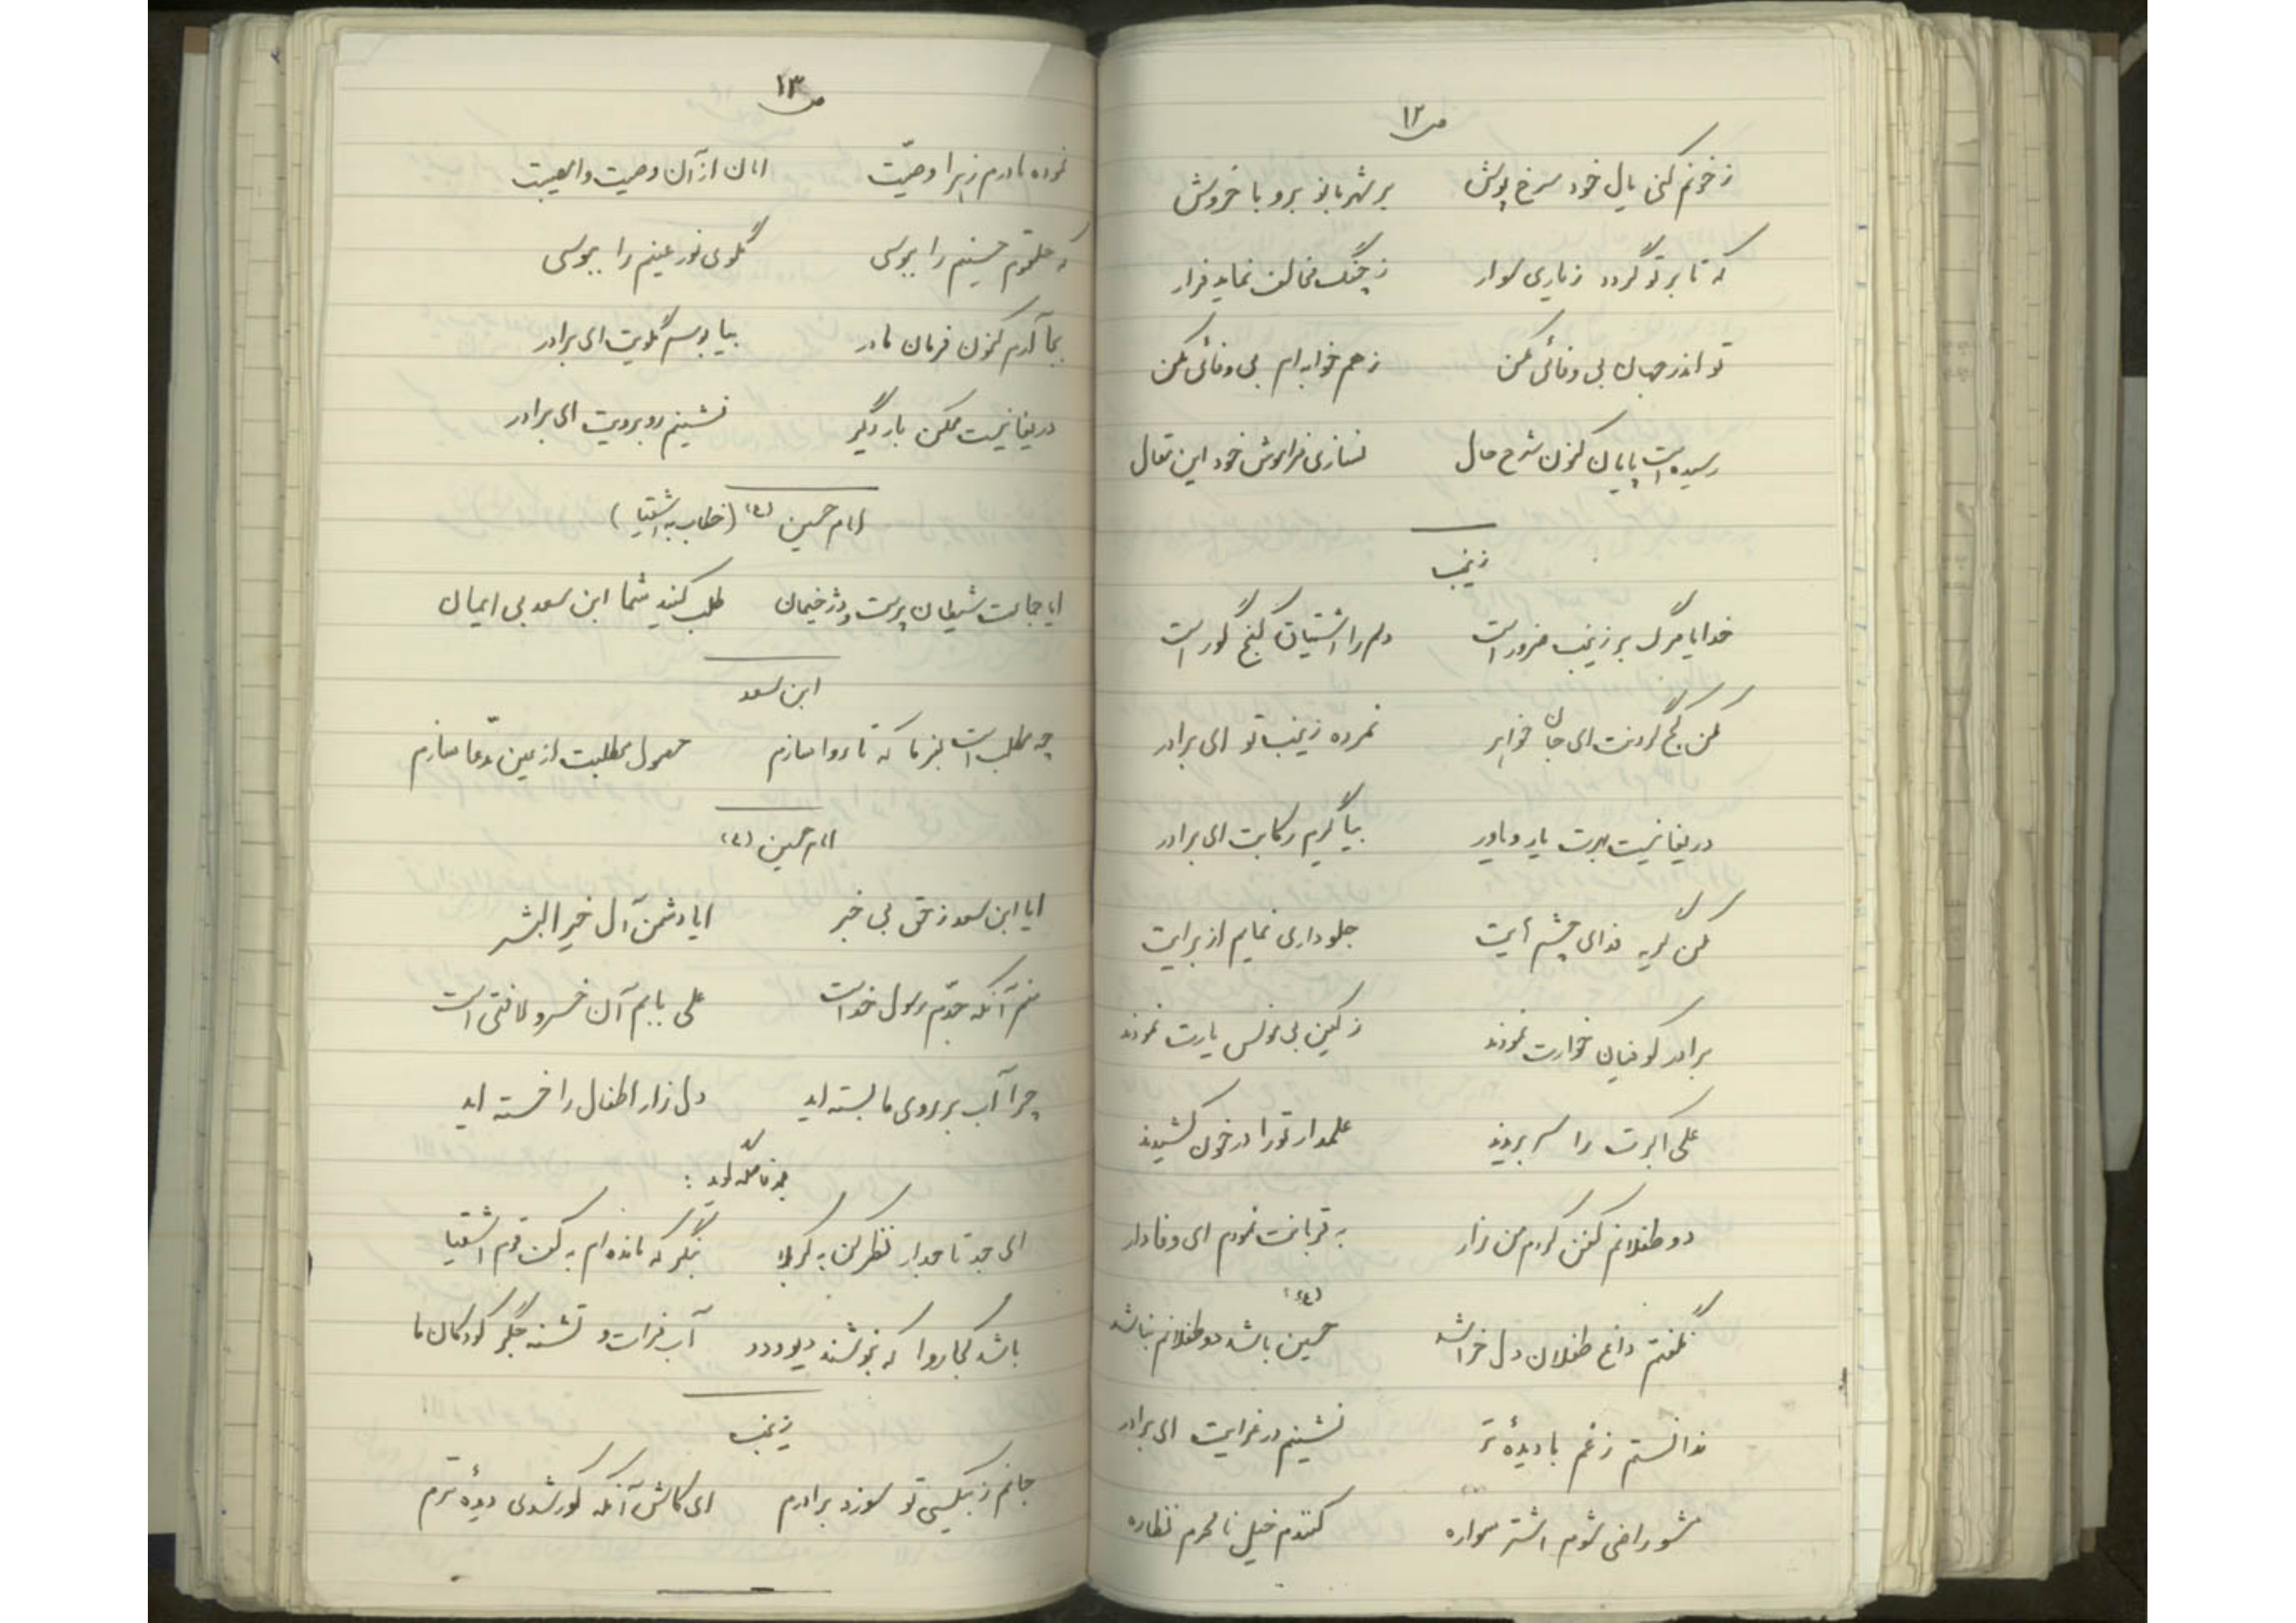 ص۱۲
ز خونم کنی یال خود سرخ پوش بر شهربانو برو با خروش
که تا بر تو گردد زیاری سوار ز جنگ مخالف نماید فرار
تو اندر جهان بی وفائی مکن ز هم خوابه ام بی وفائی مکن
رسیده است پایان کنون شرح حال نسازی فراموش خود این مقال
زینب
خدایا مرگ بر زینب ضرور است دلم را اشتیاق کنج گور است
مکن کج گردنت ای جان خواهر نمرده زینب تو ای برادر
دریغا نیست بهرت یار و یاور بیا گیرم رکابت ای برادر
مکن گریه فدای چشم‌هایت جلوداری نمایم از برایت
برادر کوفیان خوارت نمودند ز کین بی مونس یارت نمودند
علی اکبرت را سر بریدند علمدار تو را در خون کشیدند
دو طفلانم کفن کردم من زار به قربانت نمودم ای وفادار
نگفتم داغ طفلان دل خراشد حسین (ع) باشد دو طفلانم نباشد
ندانستم ز غم با دیدهٔ تر نشینم در عزایت ای برادر
مشو راضی شوم اشتر سواره کنندم خیل نامحرم نظاره
ص۱۳
نموده مادرم زهرا وصیّت امان از آن وصیت وامصیبت
که حلقوم حسینم را ببوسی گلوی نور عینم را ببوسی
بجا آرم کنون فرمان مادر بیا بوسم گلویت ای برادر
دریغا نیست ممکن بار دیگر نشینم روبرویت ای برادر
امام حسین (ع) (خطاب به اشقیا)
ایا جماعت شیطان پرست و دژخیمان طلب کنید شما ابن سعد بی ایمان
ابن سعد
چه مطلب است بفرما که تا روا سازم حصول مطلبت از عین مدّعا سازم
امام حسین (ع)
ایا ابن سعد ز حق بی خبر ایا دشمن آل خیر البشر
منم آنکه جدّم رسول خداست علی بابم آن خسرو لافتی است
چرا آب بر روی ما بسته اید دل زار اطفال را خسته اید
ای جد تاجدار نظر کن به کربلا بنگر که مانده ام به کف قوم اشقیا
باشد کجا روا که بنوشند دیو و دد آب فرات و تشنه جگر کودکان ما
زینب
جانم ز بیکسی تو سوزد برادرم ای کاش آنکه کور شدی دیدهٔ ترم